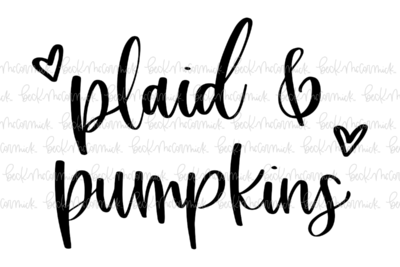 plaid &
pumpkins